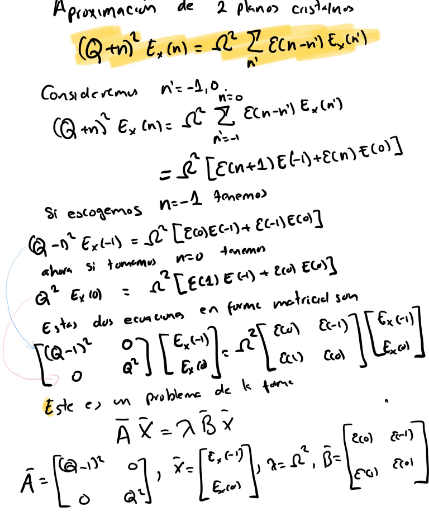 Aproximación de 2 planos cristalinos
(Q+n)² Eₓ(n) = Ω² Σ ε(n-n') Eₓ(n')
n'
Consideremos n'=-1,0.
n'=0
(Q+n)² Eₓ(n) = Ω² Σ ε(n-n') Eₓ(n')
n'=-1
= Ω² [ε(n+1)E(-1)+ε(n)E(0)]
Si escogemos n=-1 tenemos
(Q-1)² Eₓ(-1) = Ω² [ε(0)E(-1)+ε(-1)E(0)]
ahora si tomamos n=0 tenemos
Q² Eₓ(0) = Ω² [ε(1)E(-1)+ε(0)E(0)]
Estas dos ecuaciones en forma matricial son
[(Q-1)² 0] [Eₓ(-1)] = Ω² [ε(0) ε(-1)] [Eₓ(-1)]
[0 Q²] [Eₓ(0)] [ε(1) ε(0)] [Eₓ(0)]
Este es un problema de la forma
Ā X̄ = λ B̄ x̄
Ā = [(Q-1)² 0], x̄ = [Eₓ(-1)], λ = Ω², B̄ = [ε(0) ε(-1)]
[0 Q²] [Eₓ(0)] [ε(1) ε(0)]